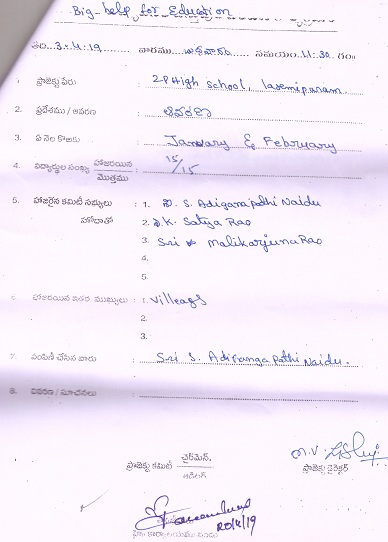 Big-help for Education
తేది 3.4.19 వారము బుధవారం సమయం 11.30 గం
1. ప్రాజెక్టు పేరు : ZPHigh School, laxmipuram.
2. ప్రదేశము / ఆవరణ : ఆవరణ
3. ఏ నెల కొఱకు : January & February
4. విద్యార్థుల సంఖ్య హాజరయిన / మొత్తము : 15/15
5. హాజరైన కమిటీ సభ్యులు : 1. S. Adigarapathi Naidu
హోదాతో 2. K. Satya Rao
3. Sri malikarjuna Rao
4.
5.
6. హాజరయిన ఇతర ముఖ్యులు : 1. Villeags
2.
3.
7. పంపిణీ చేసిన వారు : Sri S. Adiranga Pathi Naidu.
8. వివరణ / సూచనలు :
ప్రాజెక్టు కమిటీ చైర్మెన్.
ఆడిటర్
ప్రాజెక్టు డైరెక్టర్
20/4/19